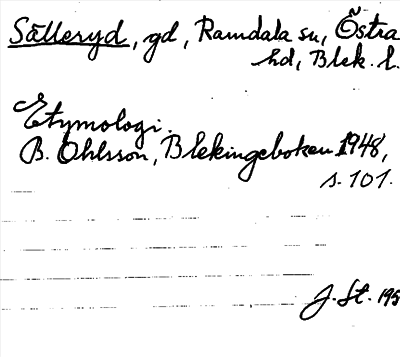 Sälleryd, gd, Ramdala sn, Östra
hd, Blek. l.
Etymologi.
B. Ohlsson, Blekingeboken 1948,
s. 101.
J. St. 195